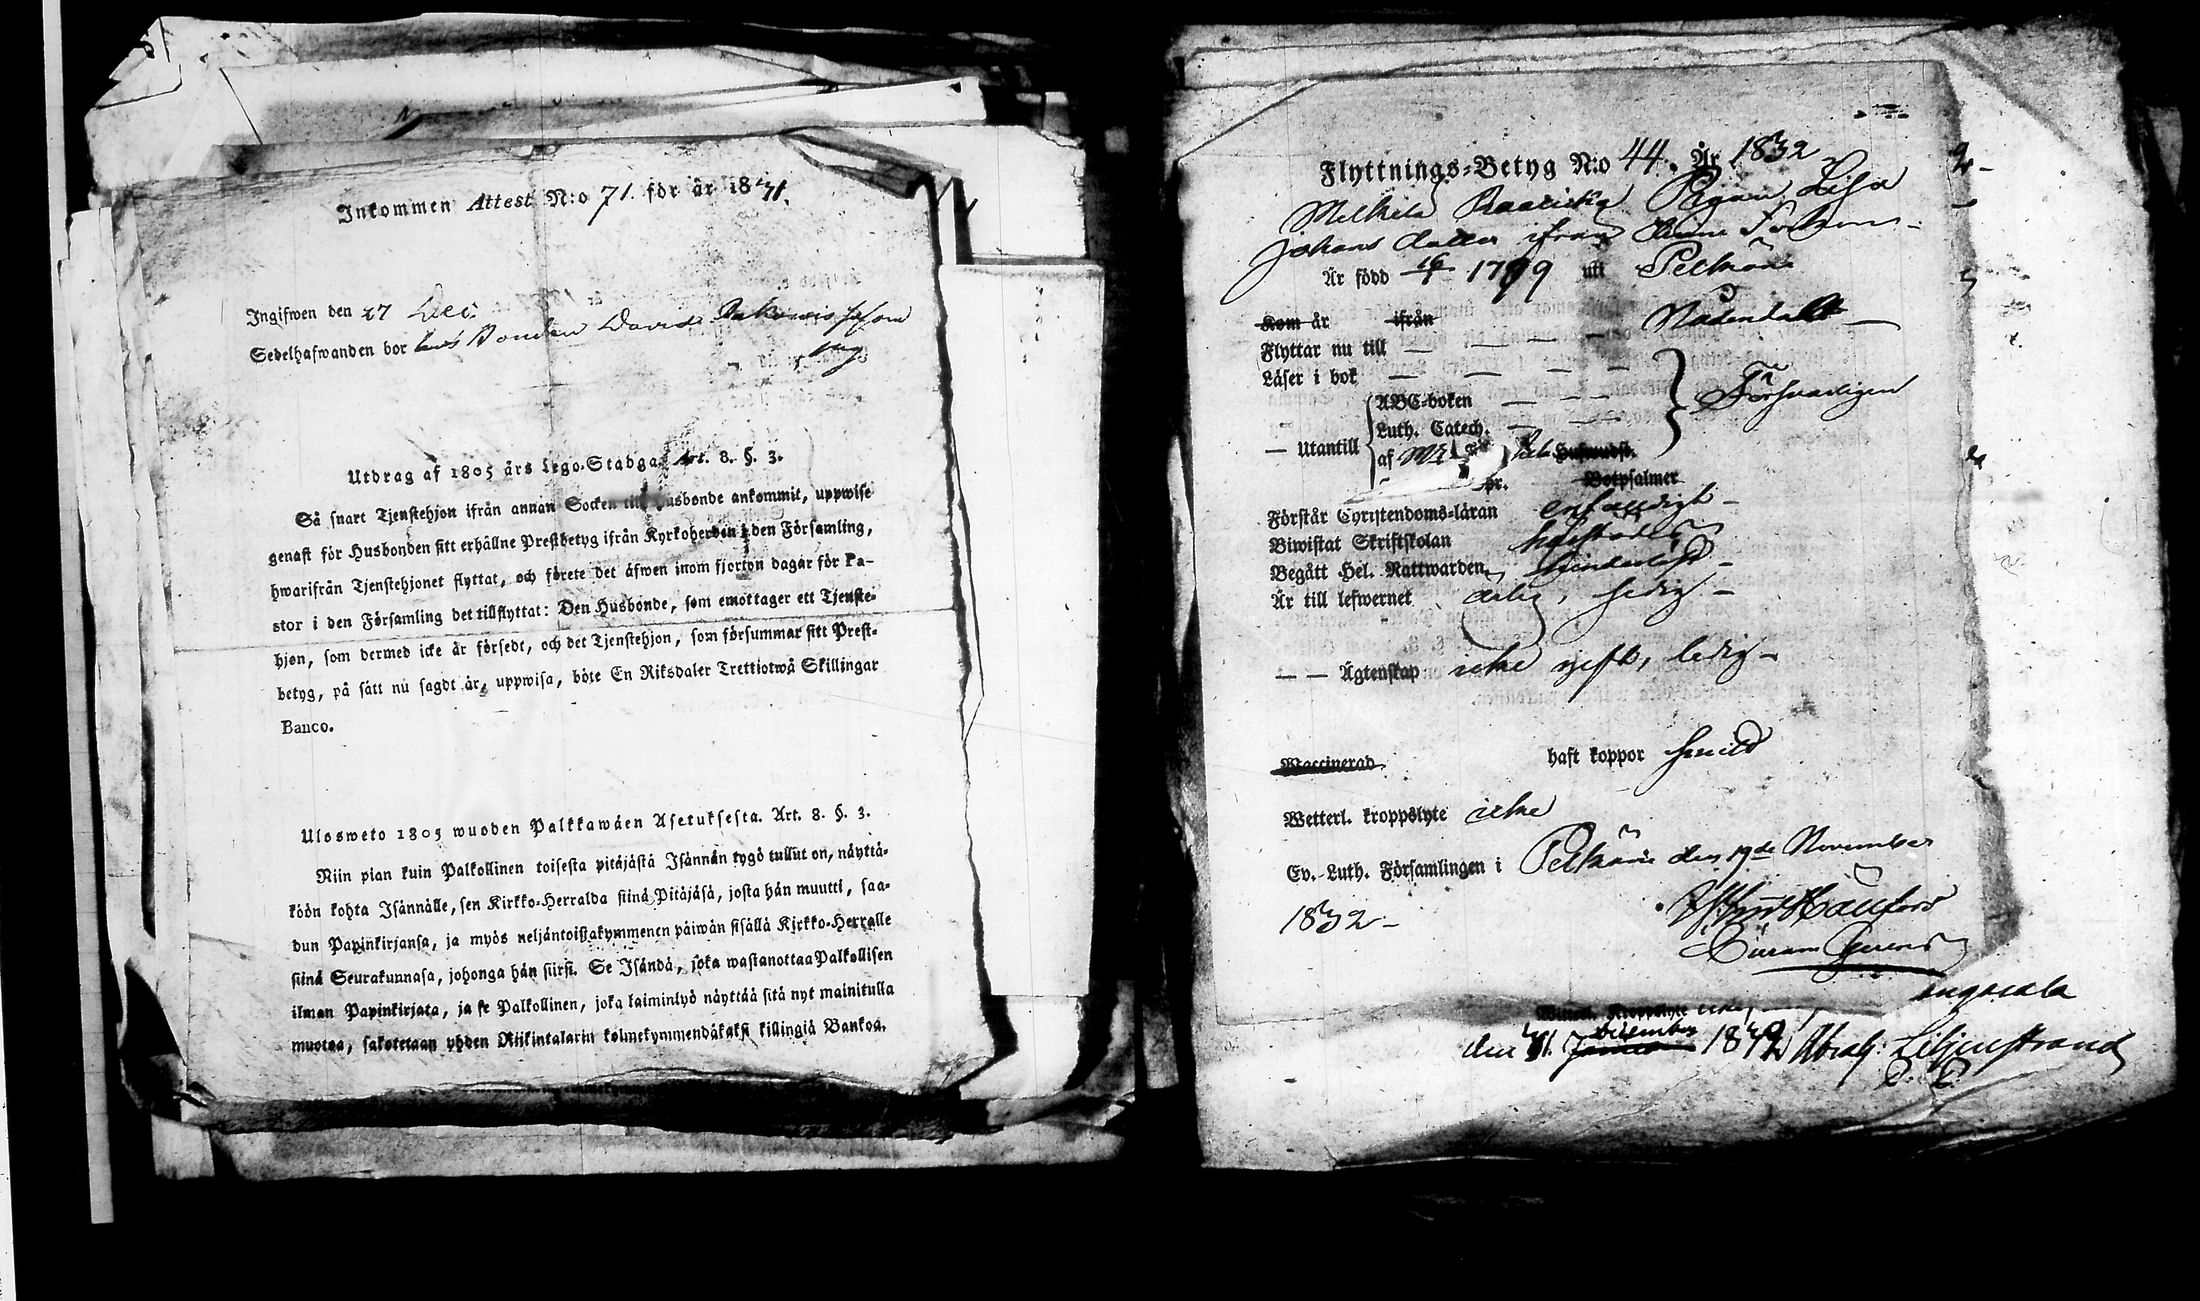 Inkommen Attest N:o 71. för år 1831.
Ingifwen den 27 Dec:
Sedelhafwanden bor hos Bonden David
Utdrag af 1805 års Lego-Stadga Art. 8. §. 3.
Så snart Tjenstehjon ifrån annan Socken till Husbonde ankommit, uppwise
genast för Husbonden sitt erhållne Prestbetyg ifrån Kyrkoherden i den Församling,
hwarifrån Tjenstehjonet flyttat, och förete det äfwen inom fjorton dagar för Pa-
stor i den Församling det tillflyttat: Den Husbonde, som emottager ett Tjenste-
hjon, som dermed icke är försedt, och det Tjenstehjon, som försummar sitt Prest-
betyg, på sätt nu sagdt är, uppwisa, böte En Riksdaler Trettiotwå Skillingar
Banco.
Ulosweto 1805 wuoden Palkkawäen Asetuksesta. Art. 8. §. 3.
Niin pian kuin Palkollinen toisesta pitäjästä Isännän tygö tullut on, näyttä-
köön kohta Isännälle, sen Kirkko-Herralda siinä Pitäjäsä, josta hän muutti, saa-
dun Papinkirjansa, ja myös neljäntoistakymmenen päiwän sisällä Kirkko-Herralle
siinä Seurakunnasa, johonga hän siirsi. Se Isändä, joka wastanottaa Palkollisen
ilman Papinkirjata, ja se Palkollinen, joka laiminlyö näyttää sitä nyt mainitulla
muotoa, sakotetaan yhden Riikintalarin kolmekymmendäkaksi killingiä Bankoa.
Flyttnings-Betyg N:o 44. År 1832
Pigan Lisa
Johans dotter ifrån
Är född 16 1799 utt Pelkäne
Kom år ifrån
Flyttar nu till — — — Nådendal —
Läser i bok — — — —
ABC-boken — — —
Luth. Catech. — — — Försvarligen
— Utantill
af Hustawl.
spr. Botpsalmer
Förstår Christendoms-läran enfaldigt —
Biwistat Skriftskolan
Begått Hel. Nattwarden hinderlöst —
Är till lefwernet ärlig, sedig —
— — Ägtenskap icke gift, ledig —
Waccinerad haft koppor
Wetterl. kroppslyte icke
Ev.-Luth. Församlingen i Pelkäne den 19de November
1832 —
Wetterl. Kroppslyte icke,
den 31. December Abrah: Liljenstrand